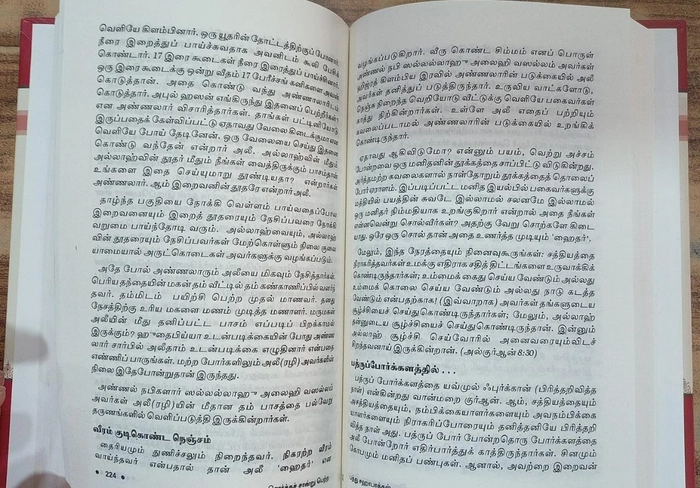 வெளியே கிளம்பினார். ஒரு யூதரின் தோட்டத்திற்குப்போனார்.
நீரை இறைத்துப் பாய்ச்சுவதாக அவனிடம் கூலி பேசிக்
கொண்டார். 17 இரை கூடைகள் நீரை இரைத்துப் பாய்ச்சினார்.
ஒரு இரை கூடைக்கு ஒன்று வீதம் 17 பேரீச்சங்கனிகளைக்
கொடுத்தான். அதை கொண்டு வந்து அண்ணலாரிடம்
கொடுத்தார். அபுல் ஹஸன் எங்கிருந்து இதனைப்பெற்றீர்கள்
என அண்ணலார் விசாரித்தார்கள். தாங்கள் பட்டினியோடு
இருப்பதைக் கேள்விப்பட்டு ஏதாவது வேலைகிடைக்குமா என
வெளியே போய் தேடினேன். ஒரு வேலையை செய்து இதனை
கொண்டு வந்தேன் என்றார் அலீ. அல்லாஹ்வின் மீதும்
அல்லாஹ்வின் தூதர் மீதும் நீங்கள் வைத்திருக்கும் பாசம்தான்
உங்களை இதை செய்யுமாறு தூண்டியதா? என்றார்கள்
அண்ணலார். ஆம் இறைவனின் தூதரே என்றார் அலீ.
தாழ்ந்த பகுதியை நோக்கி வெள்ளம் பாய்வதைப்போல
இறைவனையும் இறைத் தூதரையும் நேசிப்பவரை நோக்கி
வறுமை பாய்ந்தோடி வரும். அல்லாஹ்வையும், அல்லாஹ்
வின் தூதரையும் நேசிப்பவர்கள் மேற்கொள்ளும் நிலை குலை
யாமையால் அருட்கொடைகள் அவர்களுக்கு வழங்கப்படும்.
அதே போல் அண்ணலாரும் அலீயை மிகவும் நேசித்தார்கள்.
பெரிய தந்தையின் மகன் தம் வீட்டில் தம் கண்காணிப்பில் வளர்ந்
தவர். தம்மிடம் பயிற்சி பெற்ற முதல் மாணவர். தனது
நேசத்திற்கு உரிய மகளை மணம் முடித்த மணாளர். மருமகன்
அலீயின் மீது தனிப்பட்ட பாசம் எப்படிப் பிறக்காமல்
இருக்கும்? ஹுதைபிய்யா உடன்படிக்கையின் போது அண்ண
லார் சார்பில் அலீதாம் உடன்படிக்கை எழுதினார் என்பதை
எண்ணிப் பாருங்கள். மற்ற போர்களிலும் அலீ(ரழி) அவர்களின்
நிலை இதேபோன்றுதான் இருந்தது.
அண்ணல் நபிகளார் ஸல்லல்லாஹு அலைஹி வஸல்லம்
அவர்கள் அலீ(ரழி)யின் மீதான தம் பாசத்தை பல்வேறு
தருணங்களில் வெளிப்படுத்தி இருக்கிறார்கள்.
வீரம் குடிகொண்ட நெஞ்சம்
தைரியமும் துணிச்சலும் நிறைந்தவர். நிகரற்ற வீரம்
வாய்ந்தவர் என்பதால் தான் அலீ 'ஹைதர்' என
224
வழங்கப்படுகிறார். வீரு கொண்ட சிம்மம் எனப் பொருள்
அண்ணல் நபி ஸல்லல்லாஹு அலைஹி வஸல்லம் அவர்கள்
கிளம்பிய இரவில் அண்ணலாரின் படுக்கையில் அலீ
அவர்கள் தனித்துப் படுத்திருந்தார். உருவிய வாட்களோடு,
நெற்றி நிறைந்த வெறியோடு வீட்டுக்கு வெளியே பகைவர்கள்
நின்றிருந்தார்கள். உள்ளே அலீ எதைப் பற்றியும்
கவலைப்படாமல் அண்ணலாரின் படுக்கையில் உறங்கிக்
கொண்டிருந்தார்.
ஏதாவது ஆகிவிடுமோ? என்னும் பயம், வெற்று அச்சம்
போன்றவை ஒரு மனிதனின் தூக்கத்தை சாப்பிட்டு விடுகின்றது.
அர்த்தமற்ற கவலைகளால் நாள்தோறும் தூக்கத்தைத் தொலைப்
போர் ஏராளம். இப்படிப்பட்ட மனித இயல்பில் பகைவர்களுக்கு
மத்தியில் பயத்தின் சுவடே இல்லாமல் சலனமே இல்லாமல்
ஒரு மனிதர் நிம்மதியாக உறங்குகிறார் என்றால் அதை நீங்கள்
என்னவென்று சொல்வீர்கள்? அதற்கு வேறு சொற்களே கிடை
யாது. ஒரே ஒரு சொல் தான் அதை உணர்த்த முடியும் 'ஹைதர்'.
மேலும், இந்த நேரத்தையும் நினைவுகூருங்கள்: சத்தியத்தை
நிராகரித்தவர்கள் உமக்கு எதிராக சதித் திட்டங்களை உருவாக்கிக்
கொண்டிருந்தார்கள்; உம்மைக் கைது செய்ய வேண்டும் அல்லது
உம்மைக் கொலை செய்ய வேண்டும் அல்லது நாடு கடத்த
வேண்டும் என்பதற்காக! (இவ்வாறாக) அவர்கள் தங்களுடைய
சூழ்ச்சியைச் செய்துகொண்டிருந்தார்கள்; மேலும், அல்லாஹ்
தன்னுடைய சூழ்ச்சியைச் செய்துகொண்டிருந்தான். இன்னும்
அல்லாஹ் சூழ்ச்சி செய்வோரில் அனைவரையும்விடச்
சிறந்தவனாய் இருக்கின்றான். (அல்குர்ஆன் 8:30)
பத்ருப்போர்க்களத்தில் . . .
பத்ருப் போர்க்களத்தை யவ்முல் ஃபுர்க்கான் (பிரித்தறிவித்த
நாள்) என்கின்றது வான்மறை குர்ஆன். ஆம், சத்தியத்தையும்
அசத்தியத்தையும், நம்பிக்கையாளர்களையும் அவநம்பிக்கை
யாளர்களையும் நிராகரிப்போரையும் தனித்தனியே பிரித்தறி
வித்த நாள் அது. பத்ருப் போர் போன்றதொரு போர்க்களத்தை
அலீ போன்றோர் எதிர்பார்த்துக் காத்திருந்தார்கள். சினமும்
கோபமும் மனிதப் பண்புகள். ஆனால், அவற்றை இறைவன்